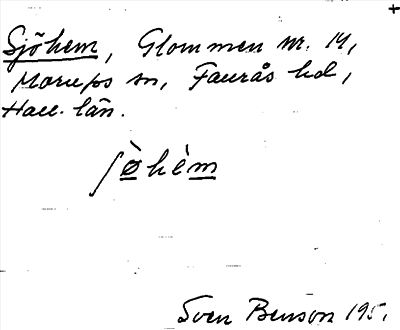 +
Sjöhem, Glommen nr. 14,
Morups sn, Faurås hd,
Hall. län.
ʃø̀hèm
Sven Benson 195.